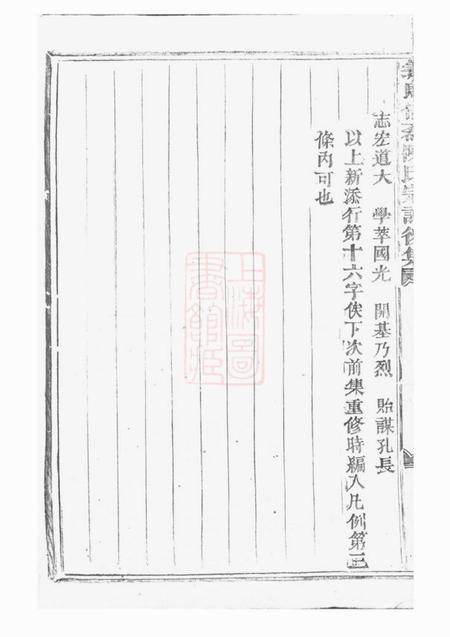 氏宗譜後集
志宏道大　學萃國光　開基乃烈　貽謀孔長
以上新添行第十六字俟下次前集重修時編入凡例第三
條內可也
上海圖書館藏